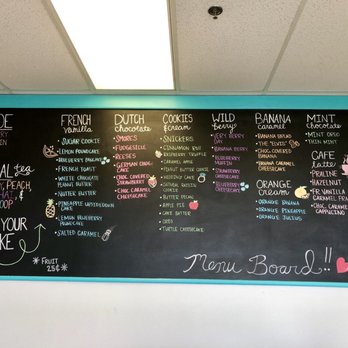 FRENCH
vanilla
SUGAR COOKIE
LEMON POUNDCAKE
BLUEBERRY PANCAKE
FRENCH TOAST
WHITE CHOCOLATE
PEANUT BUTTER
NUTTER
PINEAPPLE UPSIDEDOWN
CAKE
LEMON BLUEBERRY
POUNDCAKE
SALTED CARAMEL
* FRUIT
25¢ *
DUTCH
chocolate
S'MORES
FUDGESICLE
REESES
GERMAN CHOC.
CAKE
CHOC COVERED
STRAWBERRY
CHOC CARAMEL
CHEESECAKE
COOKIES
& cream
SNICKERS
CINNAMON ROLL
RASPBERRY TRUFFLE
CARAMEL APPLE
PEANUT BUTTER
WEDDING CAKE
OATMEAL RAISIN
COOKIE
BUTTER PECAN
APPLE PIE
CAKE BATTER
OREO
TURTLE CHEESECAKE
WILD
berry
VERY BERRY
DAY
BLUEBERRY
MUFFIN
STRAWBERRY
CHEESECAKE
BLUEBERRY
CHEESECAKE
BANANA
caramel
BANANA BREAD
THE "ELVIS"
CHOC. COVERED
BANANA
BANANA CARAMEL
CHEESECAKE
ORANGE
cream
ORANGE BANANA
ORANGE PINEAPPLE
ORANGE JULIUS
MINT
chocolate
MINT OREO
THIN MINT
CAFE
latte
PRALINE
HAZELNUT
FR. VANILLA
CARAMEL
CHOC. CARAMEL
CAPPUCCINO
tea
PEACH,
YOUR
Menu Board!!